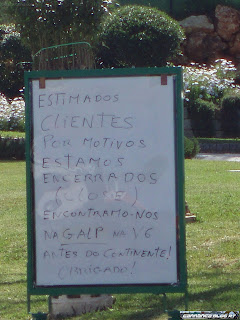 ESTIMADOS
CLIENTES
POR MOTIVOS
ESTAMOS
ENCERRADOS
(CLOSE)
ENCONTRAMO-NOS
NA GALP NA V6
ANTES DO CONTINENTE!
OBRIGADO!